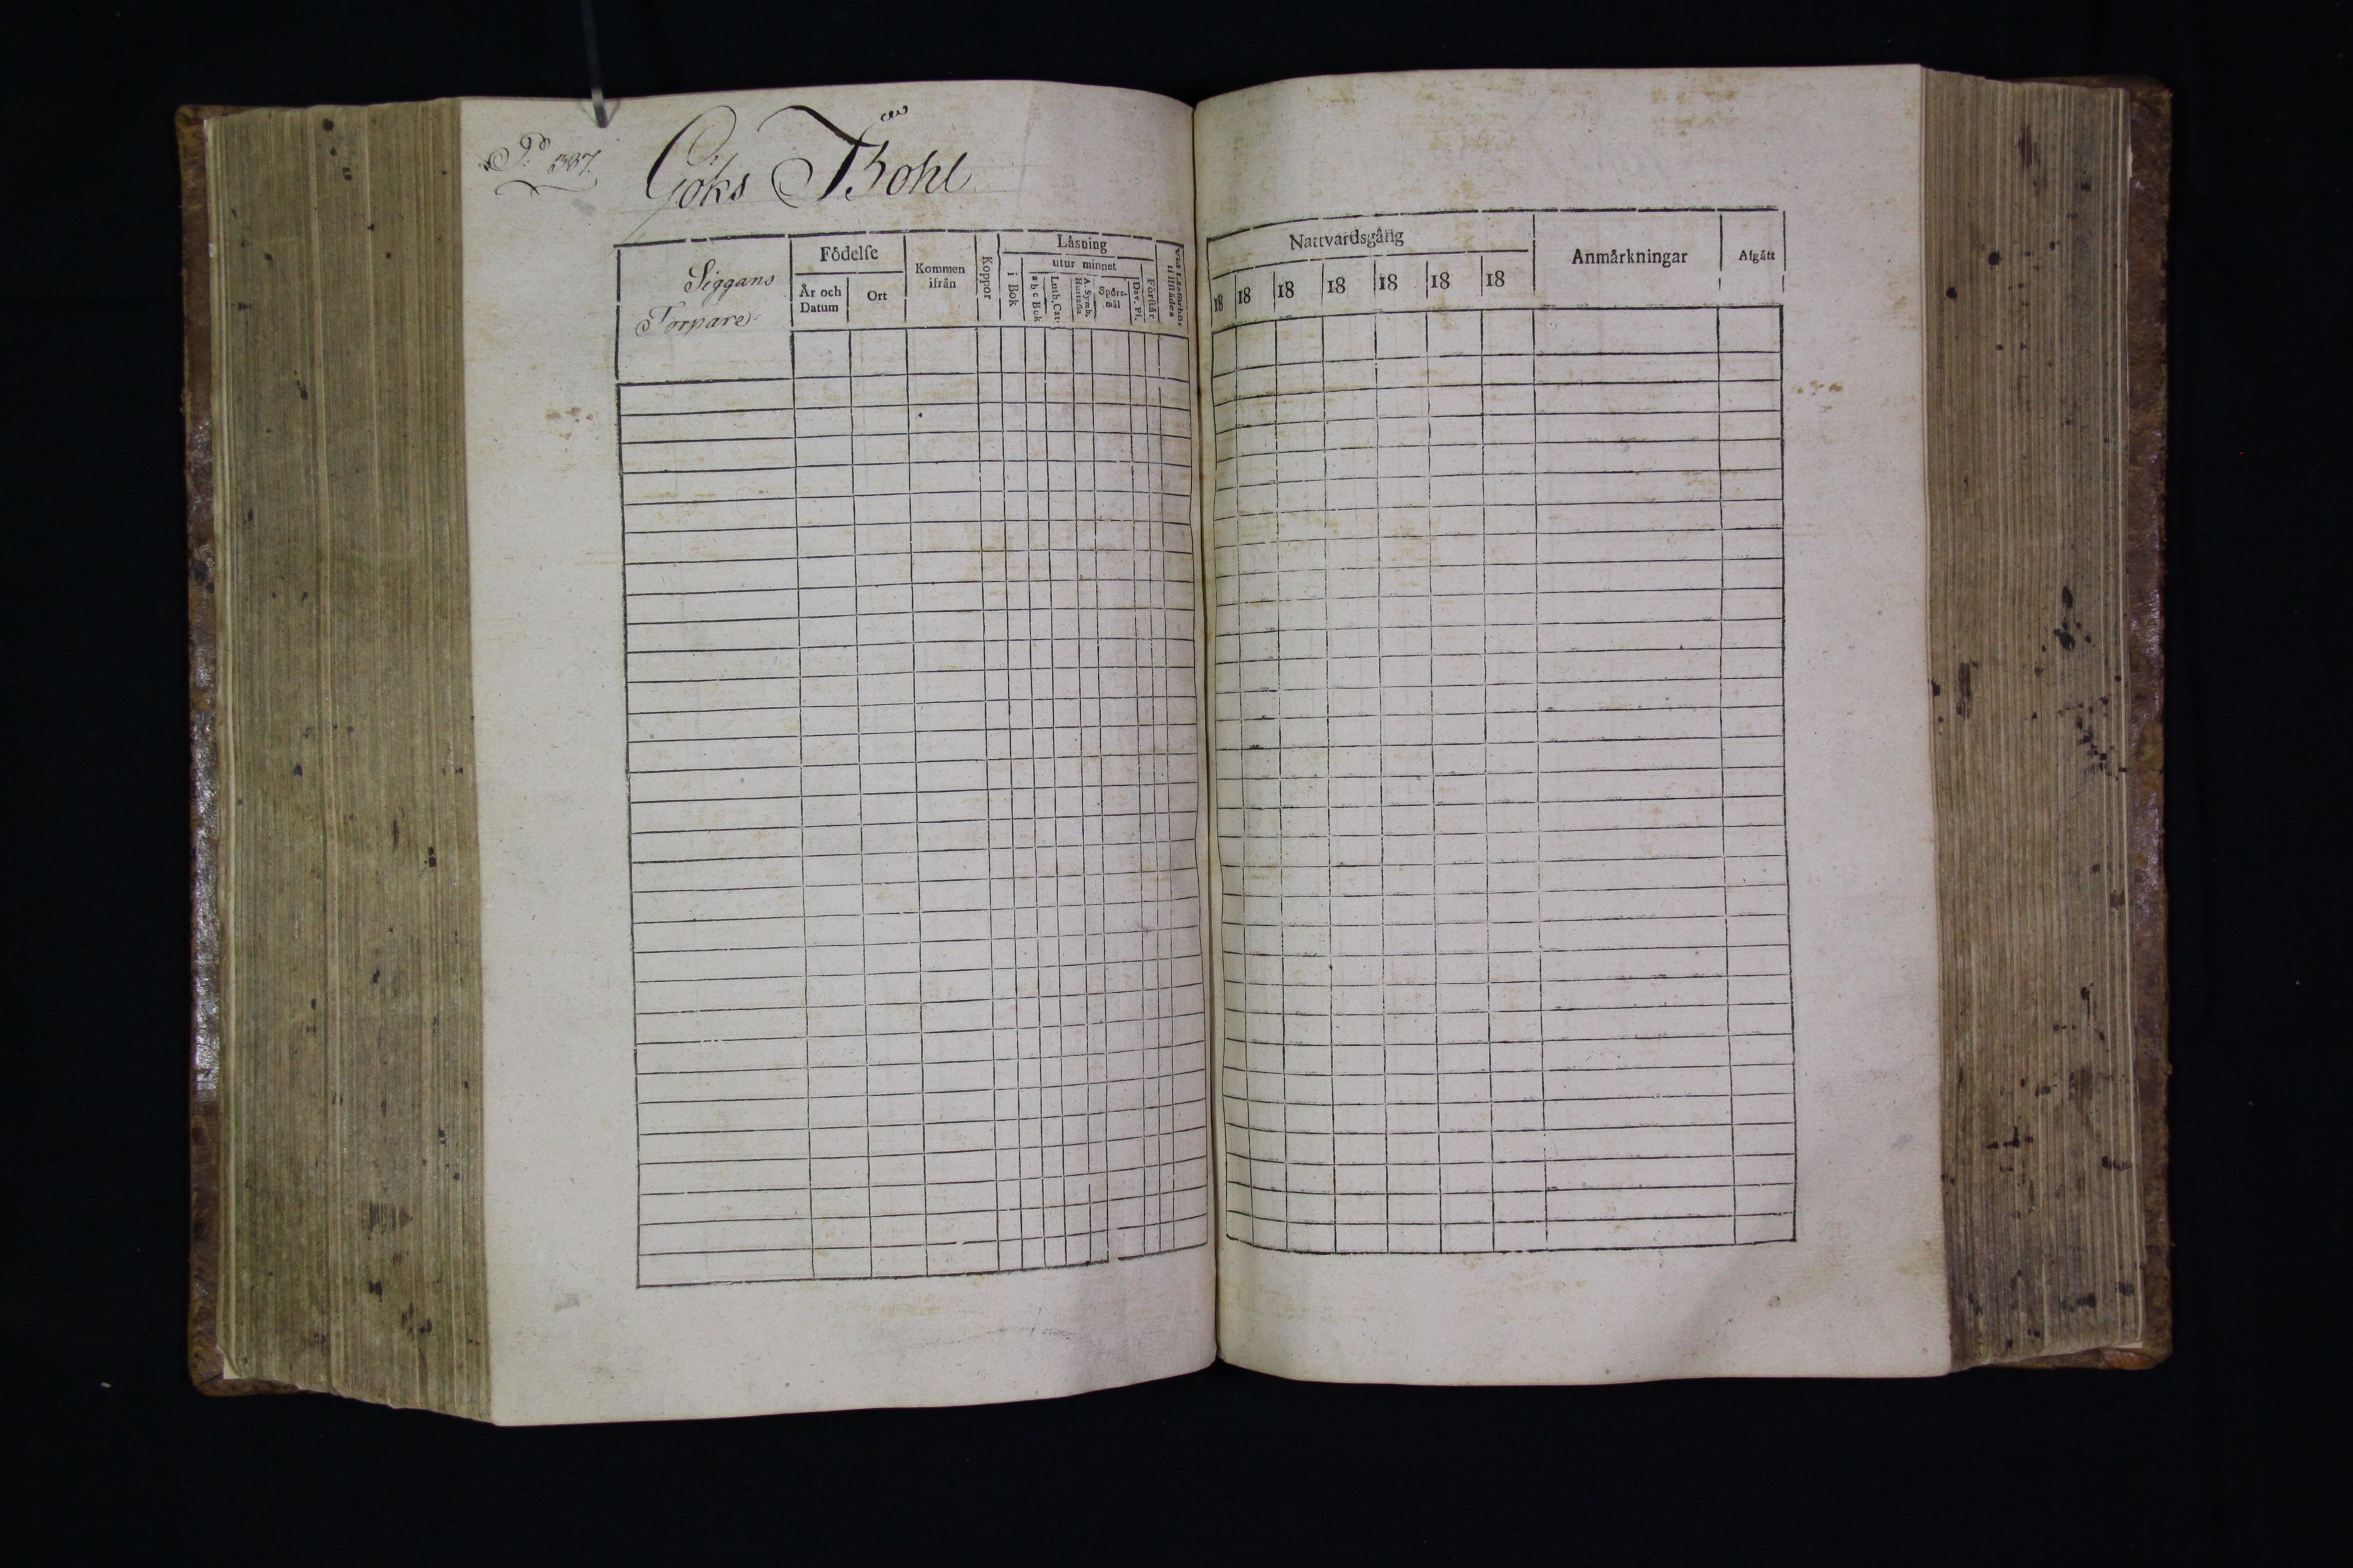 P: 307.
Göks Bohl
Siggans
Torpare
Födelſe
År och
Datum
Ort
Kommen
ifrån
Koppor
Läsning
i Bok
utur minnet
a b c Bok
Luth. Cat.
A. Symb.
Huſtafla
Spörs-
mål
Dav. Pſ.
Förſtår
Vid Läsförhör
tillſtädes
Nattvardsgång
18 18 18 18 18 18 18
Anmärkningar
Afgått